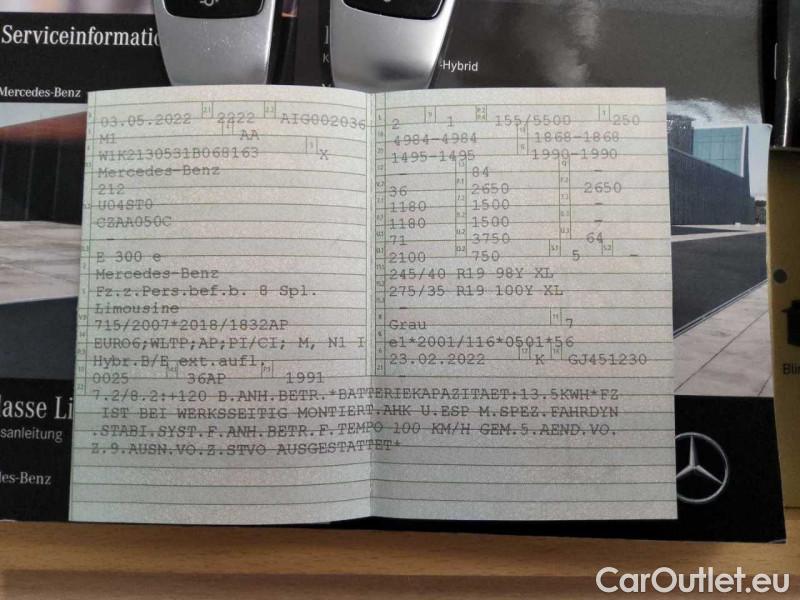 Serviceinformation
Mercedes-Benz
-Hybrid
03.05.2022 2222 AIG002036
M1 AA
W1K2130531B068163 X
Mercedes-Benz
212
U04ST0
CZAA050C
-
E 300 e
Mercedes-Benz
Fz.z.Pers.bef.b. 8 Spl.
Limousine
715/2007*2018/1832AP
EURO6;WLTP;AP;PI/CI; M, N1 I
Hybr.B/E ext.aufl.
0025 36AP 1991
2 1 155/5500 250
4984-4984 1868-1868
1495-1495 1990-1990
- 84 -
36 2650 2650
1180 1500 -
1180 1500 -
71 3750 64
2100 750 5 -
245/40 R19 98Y XL
275/35 R19 100Y XL
-
Grau 7
e1*2001/116*0501*56
23.02.2022 K GJ451230
-
7.2/8.2:+120 B.ANH.BETR.*BATTERIEKAPAZITAET:13.5KWH*FZ
IST BEI WERKSSEITIG MONTIERT.AHK U.ESP M.SPEZ.FAHRDYN
.STABI.SYST.F.ANH.BETR.F.TEMPO 100 KM/H GEM.5.AEND.VO.
Z.9.AUSN.VO.Z.STVO AUSGESTATTET*
lasse Li
sanleitung
des-Benz
Bli
CarOutlet.eu